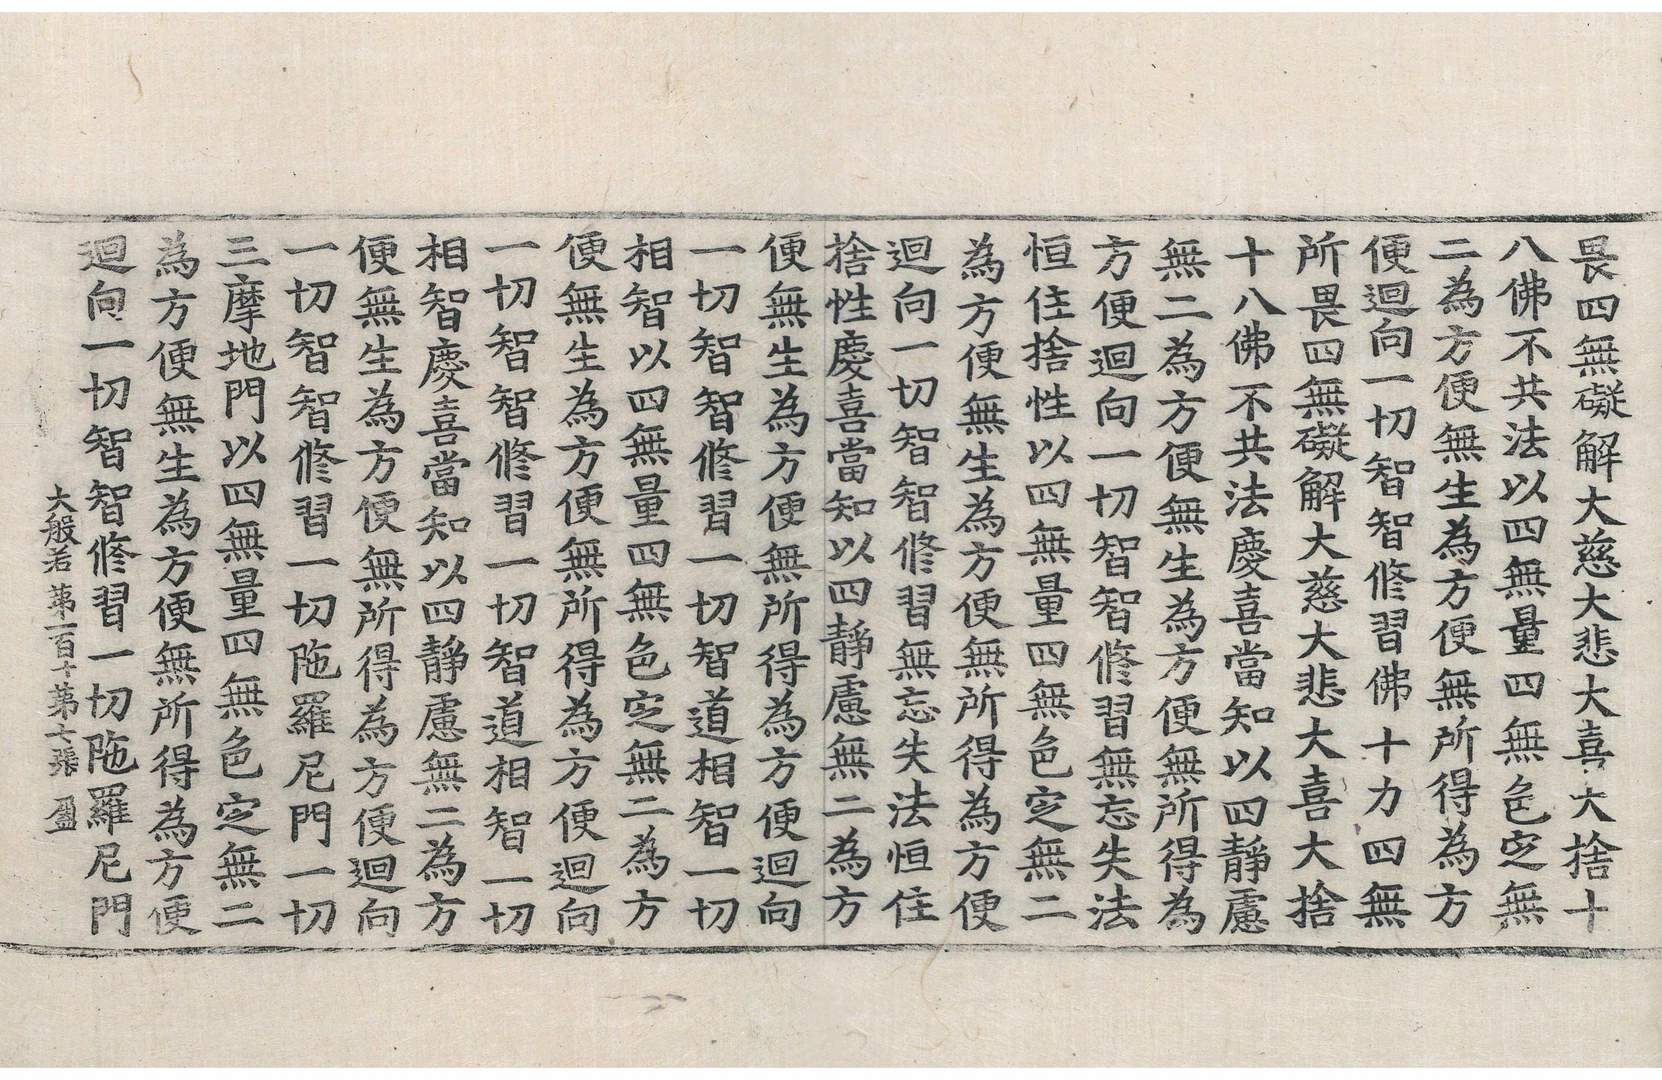 畏四無礙解大慈大悲大喜大捨十
八佛不共法以四無量四無色定無
二為方便無生為方便無所得為方
便迴向一切智智修習佛十力四無
所畏四無礙解大慈大悲大喜大捨
十八佛不共法慶喜當知以四靜慮
無二為方便無生為方便無所得為
方便迴向一切智智修習無忘失法
恒住捨性以四無量四無色定無二
為方便無生為方便無所得為方便
迴向一切智智修習無忘失法恒住
捨性慶喜當知以四靜慮無二為方
便無生為方便無所得為方便迴向
一切智智修習一切智道相智一切
相智以四無量四無色定無二為方
便無生為方便無所得為方便迴向
一切智智修習一切智道相智一切
相智慶喜當知以四靜慮無二為方
便無生為方便無所得為方便迴向
一切智智修習一切陁羅尼門一切
三摩地門以四無量四無色定無二
為方便無生為方便無所得為方便
迴向一切智智修習一切陁羅尼門
大般若 第一百十 第七張 盈